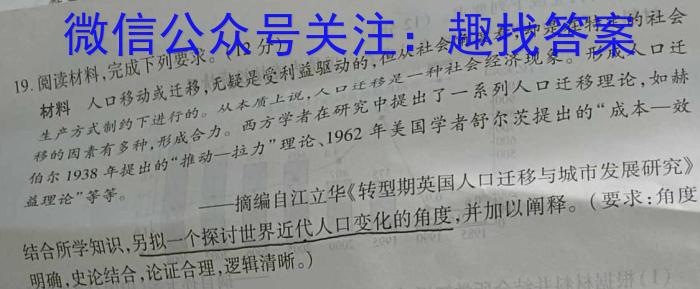 微信公众号关注：趣找答案
19. 阅读材料，完成下列要求。（12分）
材料 人口移动或迁移，无疑是受利益驱动的，但从社会 的社会
生产方式制约下进行的。从本质上说，人口迁移是一种社会经济现象。形成人口迁
移的因素有多种，形成合力。西方学者在研究中提出了一系列人口迁移理论，如赫
伯尔1938年提出的“推动—拉力”理论、1962年美国学者舒尔茨提出的“成本—效
益理论”等等。
——摘编自江立华《转型期英国人口迁移与城市发展研究》
结合所学知识，另拟一个探讨世界近代人口变化的角度，并加以阐释。（要求：角度
明确，史论结合，论证合理，逻辑清晰。）